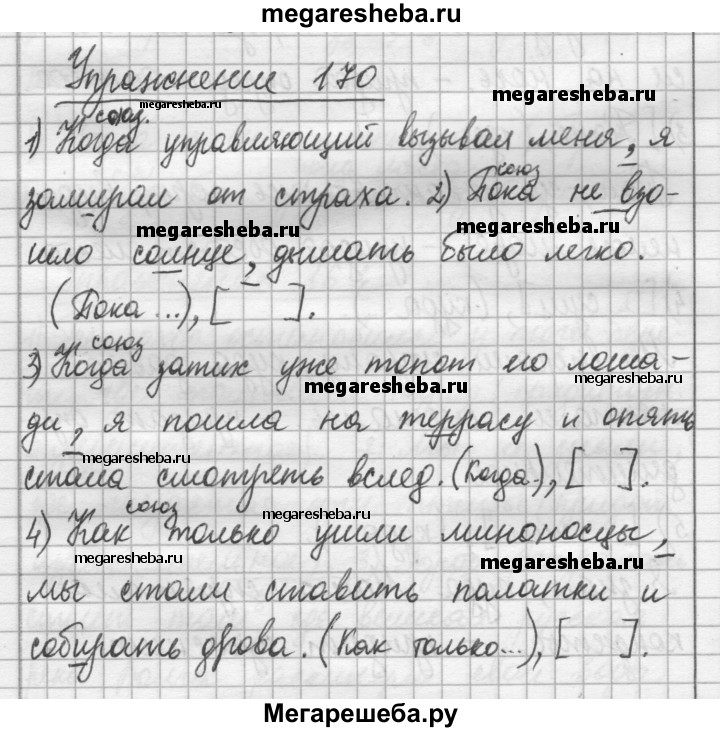 megaresheba.ru
Упражнение 170
megaresheba.ru
megaresheba.ru
союз.
1) Когда управляющий вызывал меня, я
союз
замирал от страха. 2) Пока не взо-
megaresheba.ru
megaresheba.ru
шло солнце, дышать было легко.
(Пока...), [ ].
союз
3) Когда затих уже топот его лоша-
megaresheba.ru
megaresheba.ru
ди, я пошла на террасу и опять
megaresheba.ru
стала смотреть вслед. (Когда), [ ].
союз
megaresheba.ru
4) Как только ушли миноносцы,
megaresheba.ru
megaresheba.ru
мы стали ставить палатки и
собирать дрова. (Как только...), [ ].
Мегарешеба.ру